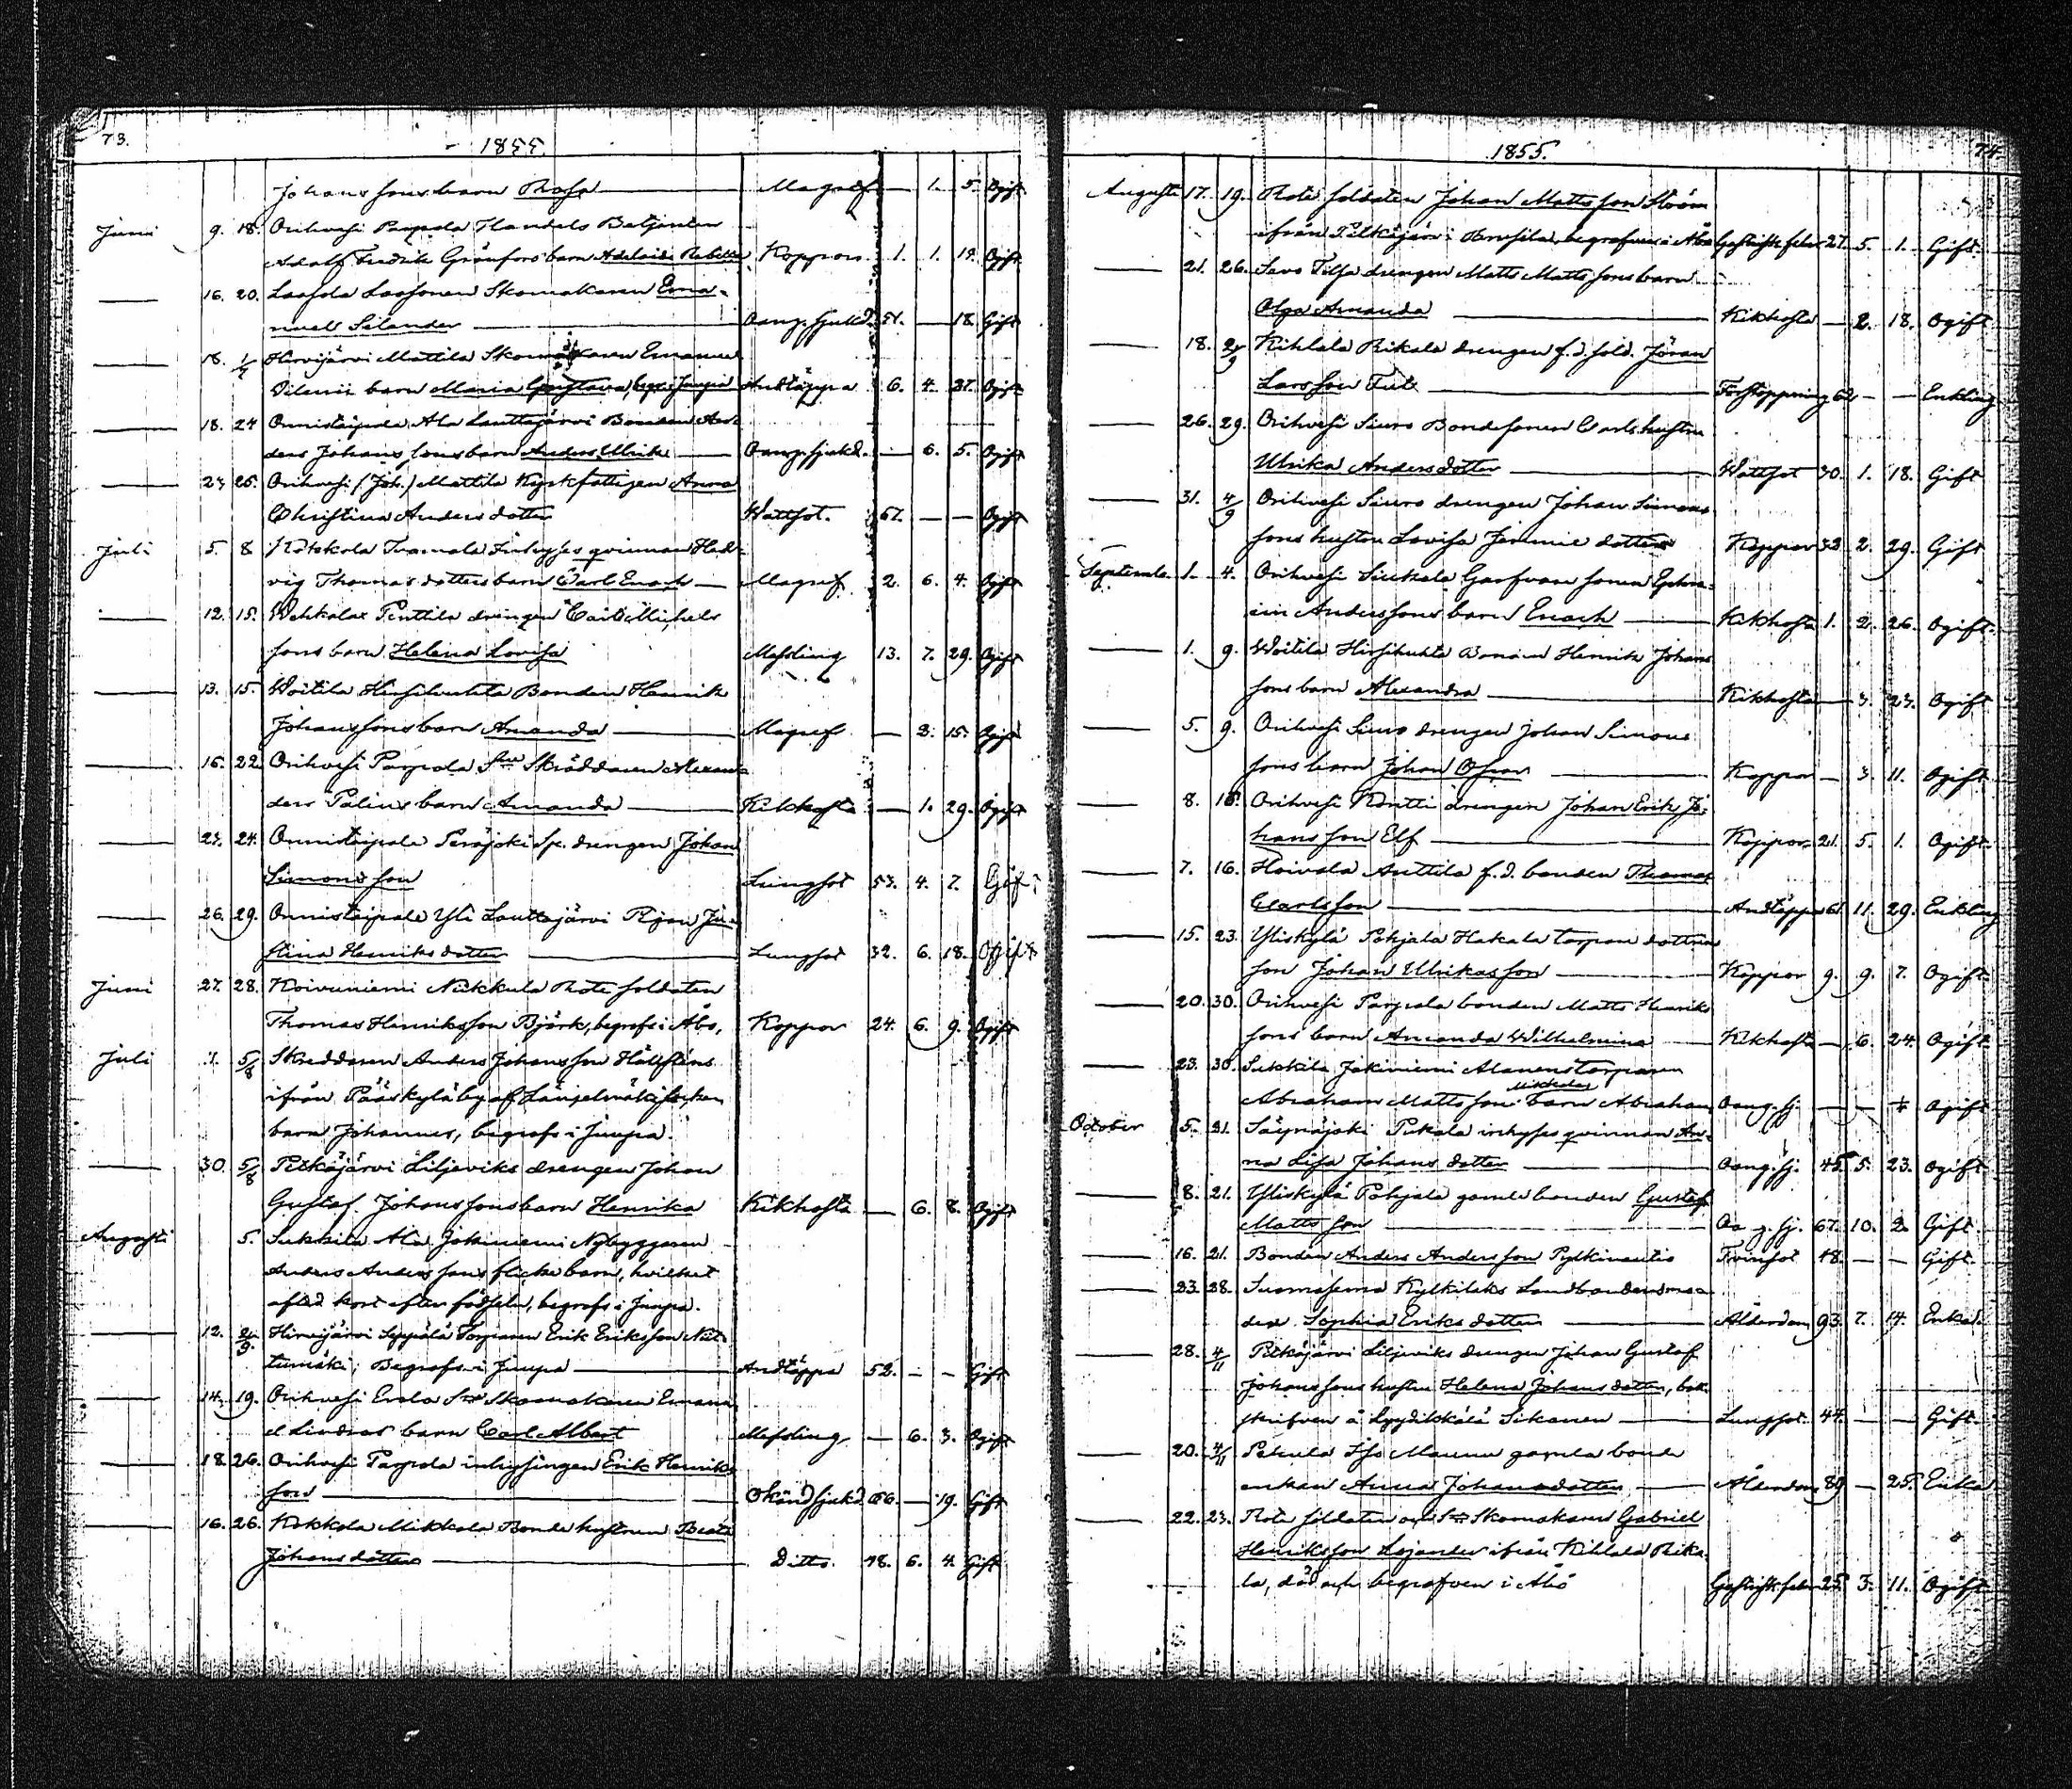 73.
1855.
Johanssons barn Rosa Magref — 1. 5. Ogift
Juni 9. 18. Orihvesi Parpola Handels Betjenten
Adolf Fredrik Grönfors barn Adelaide Rebecka Koppor 1. 1. 19. Ogift
16. 20. Laasola Laasonen Skomakaren Ema-
nuel Silander Oang. sjukd. 51. — 18. Gift
18. 1/7 Hirvijärvi Mattila Skomakaren Emanuel
barn Maria Gustava, begr. i Juupa Andtäppa 6. 4. 27. Ogift
18. 24 Onnistaipale Ala Lauttajärvi Bonden An-
ders Johanssons barn Anders Ulrik Oang. sjukd. — 6. 5. Ogift
23. 25. Orihvesi (Joh.) Mattila Kyrkfattigen Anna
Christina Andersdotter Wattsot. 67. — — Ogift
Juli 5. 8 Tramala Inhyses qvinnan Hed-
vig Thomasdotters barn Carl Enoch Magref 2. 6. 4. Ogift
12. 15. Wehkalax Penttilä drengen Carl Michels
sons barn Helena Lovisa Messling 13. 7. 29. Ogift
13. 15. Woitila Hirsilutila Bonden Henrik
Johanssons barn Amanda Magref — 2. 15. Ogift
16. 22. Orihvesi Parpola Sn Skräddaren Alexan-
ders Palins barn Amanda Kikhosta — 1. 29. Ogift
23. 24. Onnistaipale Peräjoki Sp. drengen Johan
Simonsson Lungsot 53. 4. 7. Gift
26. 29. Onnistaipale Yli Lauttajärvi Pigan Ju-
stina Henriksdotter Lungsot 32. 6. 18. Ogift
Juni 27. 28. Koivuniemi Nikkula Rote soldaten
Thomas Henriksson Björk, begrofs i Åbo, Koppor 24. 6. 9. Ogift
Juli 1. 5/8 Skreddaren Anders Johansson Hällstens
ifrån Pääskylä by af Längelmäki socken
barn Johannes, begrofs i Juupa.
30. 5/8 Pitkäjärvi Liljeviks drengen Johan
Gustaf Johanssons barn Henrika Kikhosta — 6. 8. Ogift
Augusti 5. Sukkila Ala Jokiniemi Nybyggaren
Anders Anderssons flicke barn, hvilket
afled kort efter födseln, begrofs i Juupa.
12. 2/9 Hirvijärvi Seppälä Torparen Erik Eriksson
Begrofs i Juupa Andtäppa 52. — — Gift
14. 19. Orihvesi Erola Sn Skomakaren Emanu-
el Lindros barn Carl Albert Messling — 6. 3. Ogift
18. 26. Orihvesi Parpola inhysingen Erik Henriks-
son Okänd sjukd. 66. — 19. Gift
16. 26. Kokkola Mikkola Bonde hustrun Beata
Johansdotter Ditto 48. 6. 4. Gift
1855.
74
Augusti 17. 19. Rote soldaten Johan Mattsson Ström
ifrån Pitkäjärvi begrafven i Åbo Gastrisk feber 27. 5. 1. Gift
21. 26. Savo Tilsa drengen Matts Mattssons barn
Olga Amanda Kikhosta — 2. 18. Ogift
18. 2/9 Kihlala Rikala drengen f.d. sold. Jöran
Larsson Förstoppning 62 — — Enkling
26. 29. Orihvesi Siuro Bondesonen Carls hustru
Ulrika Andersdotter Wattsot 30. 1. 18. Gift
31. 4/9 Orihvesi Siuro drengen Johan Simons-
sons hustru Lovisa Jeremie dotter Koppor 33 2. 29. Gift
September 1. 4. Orihvesi Siukola Garfvare sonen Ephra-
im Anderssons barn Enoch Kikhosta 1. 2. 26. Ogift
1. 9. Woitila Hirsilutila Bonden Henrik Johans
sons barn Alexandra Kikhosta — 3. 23. Ogift
5. 9. Orihvesi Siuro drengen Johan Simons
sons barn Johan Oscar Koppor — 3. 11. Ogift
8. 16. Orihvesi Kontti drengen Johan Erik Jo-
hansson Elf Koppor 21. 5. 1. Ogift
7. 16. Hoivala Anttila f.d. bonden Thomas
Carlsson Andtäppa 61. 11. 29. Enkling
15. 23. Yliskylä Pohjala Hakala torpare dotterns
son Johan Ulrikasson Koppor 9. 9. 7. Ogift
20. 30. Orihvesi Parpola bonden Matts Henriks
sons barn Amanda Wilhelmina Kikhosta — 6. 24. Ogift
23. 30. Sukkila Jokiniemi Alanens torparen
Abraham Mattsson barn Abraham Oang. sj. — — Ogift
October 5. 21. Säynäjoki Pukala inhyses qvinnan An-
na Lisa Johans dotter Oang. sj. 45 5. 23. Ogift
8. 21. Yliskylä Pohjala gamle bonden Gustaf
Mattsson Oang. sj. 67. 10. 2 Gift
16. 21. Bonden Anders Andersson Pylkinautio Tvinsot 48. — — Gift.
23. 28. Suomasema Kylkilaks Landbondens mo-
der Sophia Eriksdotter Ålderdom 93. 7. 14. Enka.
28. 4/11 Pitkäjärvi Liljeviks drengen Johan Gustaf
Johanssons hustru Helena Johansdotter, bok-
skrifven å Lyydikkälä Sikanen Lungsot 44. — — Gift.
20. 4/11 Pehula Iso Maunu gamla bonde
enkan Anna Johansdotter Ålderdom 89 — 25. Enka
22. 23. Rote soldaten och Sn Skomakaren Gabriel
Henriksson Lojander ifrån Kihlala Rika-
la, död och begrafven i Åbo Gastrisk feber 25. 3. 11. Ogift